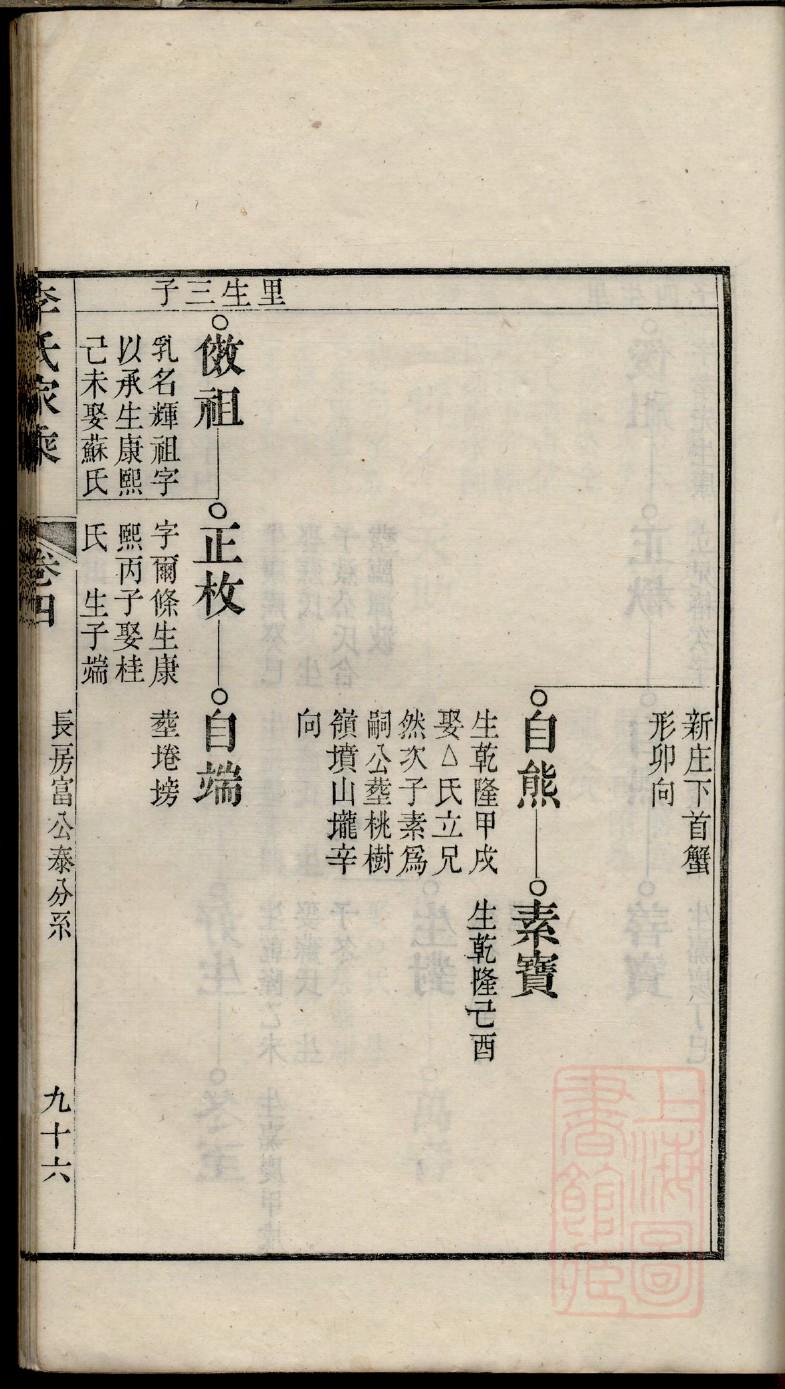 新庄下首蟹
形卯向
自熊
生乾隆甲戌
娶△氏立兄
然次子素爲
嗣公塟桃樹
嶺墳山壠辛
向
素寶
生乾隆己酉
里生三子
傚祖
乳名輝祖字
以承生康熙
己未娶蘇氏
正枚
字爾條生康
熙丙子娶桂
氏 生子端
自端
塟埢塝
李氏家乘
卷四
長房富公泰分系
九十六
上海圖書館藏